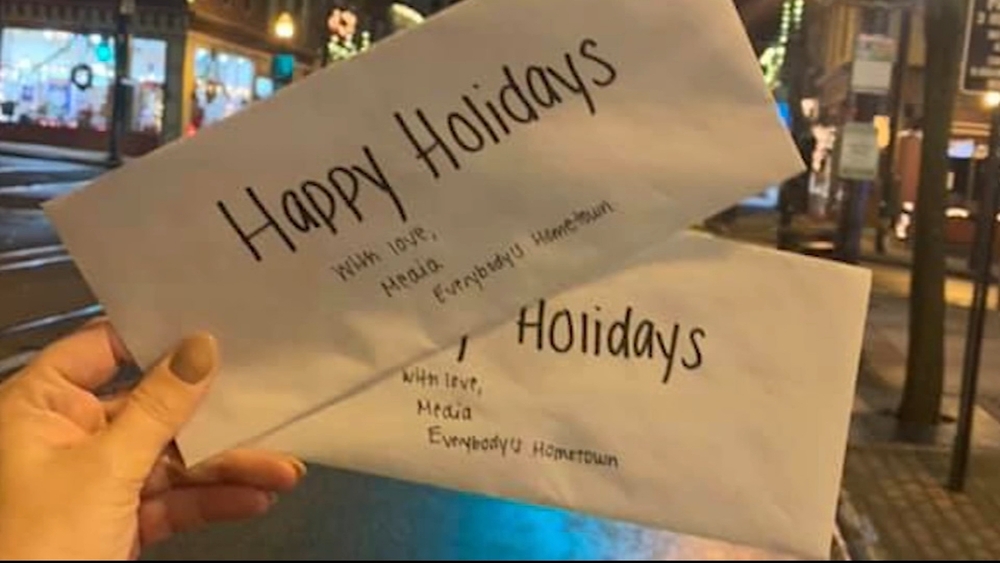 Happy Holidays
With love,
Media
Everybody's Hometown
Holidays
With love,
Media
Everybody's Hometown